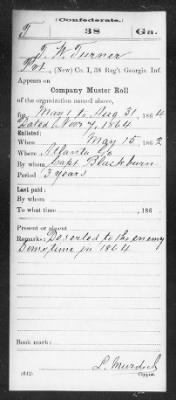 (Confederate.)
T 38 Ga.
T. W. Turner
Pvt., (New) Co. I, 38 Reg't Georgia Inf.
Appears on
Company Muster Roll
of the organization named above,
for May 1 to Aug 31, 1864
Dated Nov 7, 1864
Enlisted:
When May 15, 1862
Where Atlanta Ga
By whom Capt Blackburn
Period 3 years
Last paid:
By whom
To what time , 186 .
Present or absent
Remarks: Deserted to the enemy
Sometime in 1864
Book mark:
L. Murdoch
(642) Copyist.